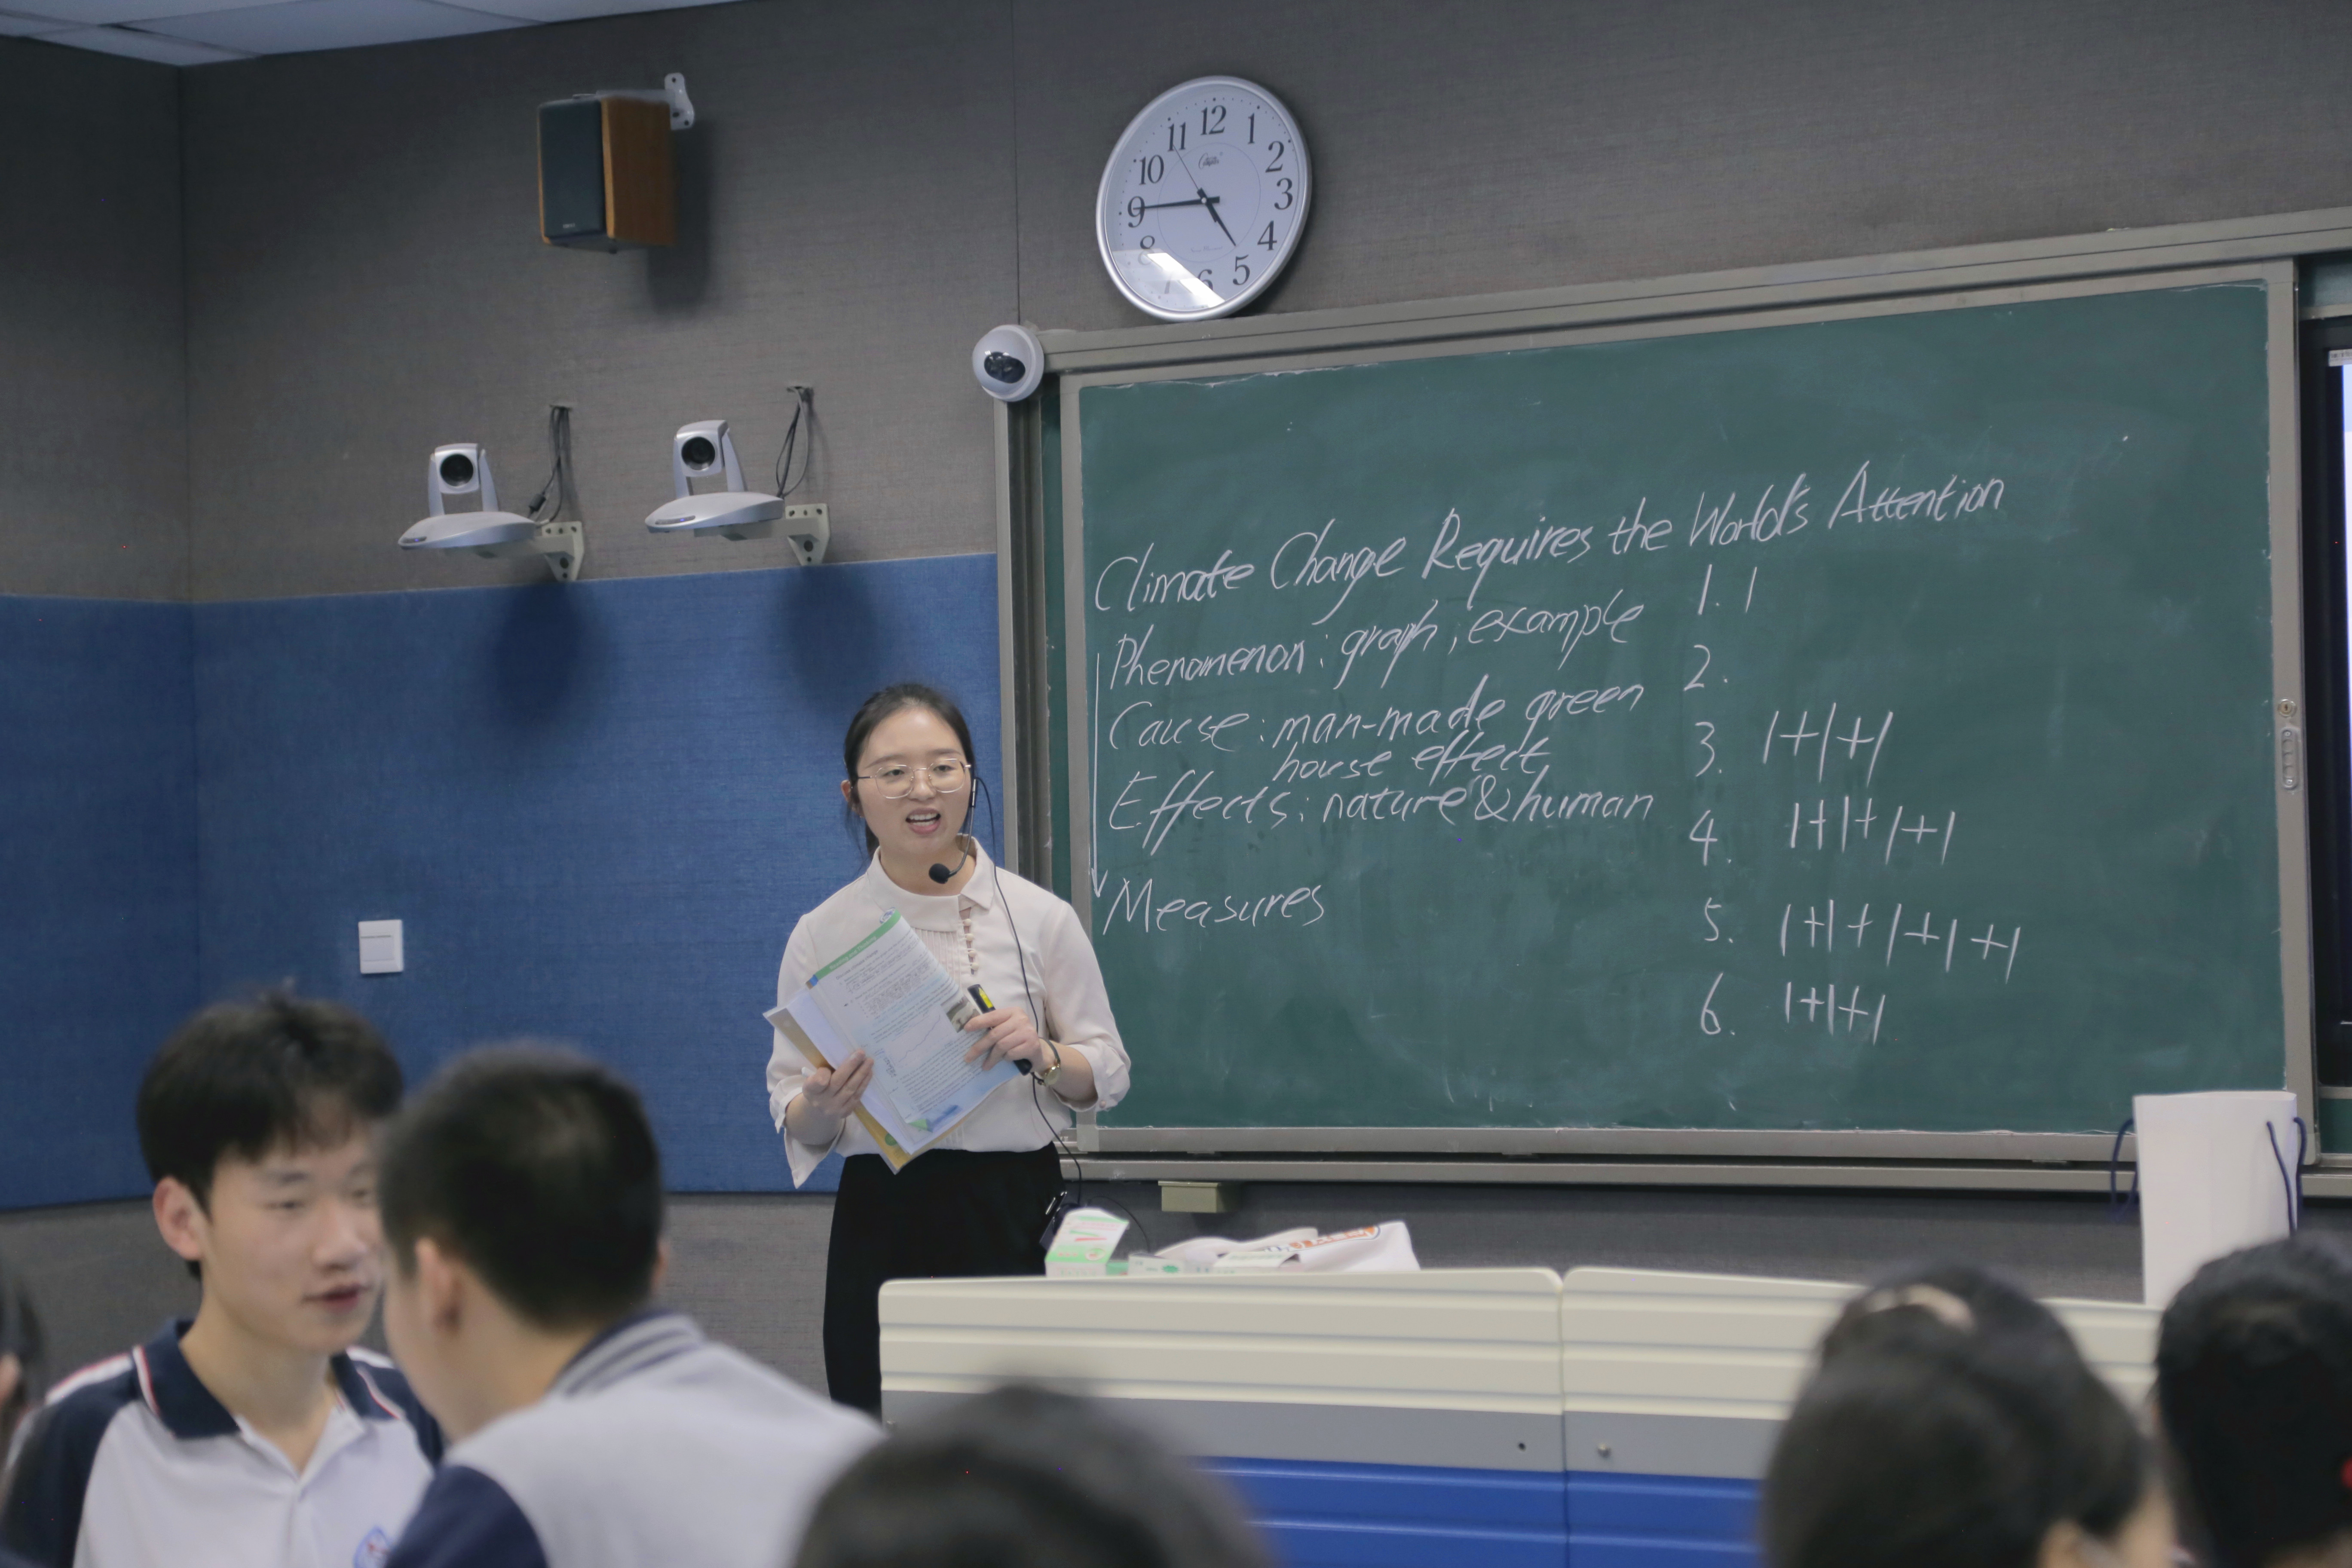 12
11 1
10 2
9 3
8 4
7 6 5
Climate Change Requires the World's Attention
Phenomenon: graph, example
Cause: man-made green
house effect
Effects: nature & human
Measures
1. |
2.
3. |+|+|
4. |+|+|+|
5. |+|+|+|+|
6. |+|+|